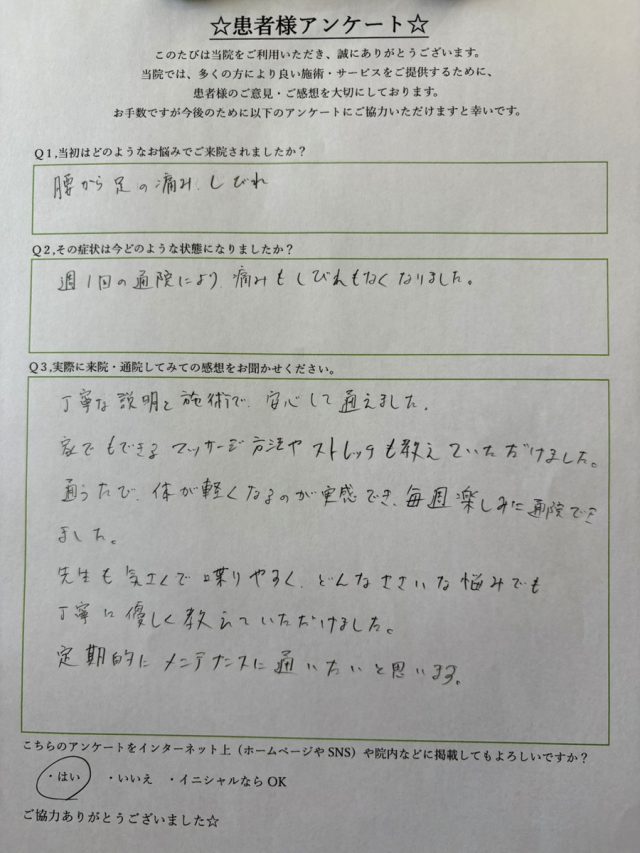 ☆患者様アンケート☆
このたびは当院をご利用いただき、誠にありがとうございます。
当院では、多くの方により良い施術・サービスをご提供するために、
患者様のご意見・ご感想を大切にしております。
お手数ですが今後のために以下のアンケートにご協力いただけますと幸いです。
Q1,当初はどのようなお悩みでご来院されましたか？
腰から足の痛み、しびれ
Q2,その症状は今どのような状態になりましたか？
週1回の通院により、痛みもしびれもなくなりました。
Q3,実際に来院・通院してみての感想をお聞かせください。
丁寧な説明と施術で、安心して通えました。
家でもできるマッサージ方法やストレッチも教えていただけました。
通うたび、体が軽くなるのが実感でき、毎週楽しみに通院でき
ました。
先生も気さくで喋りやすく、どんなささいな悩みでも
丁寧に優しく教えていただけました。
定期的にメンテナンスに通いたいと思います。
こちらのアンケートをインターネット上（ホームページや SNS）や院内などに掲載してもよろしいですか？
・はい ・いいえ ・イニシャルなら OK
ご協力ありがとうございました☆